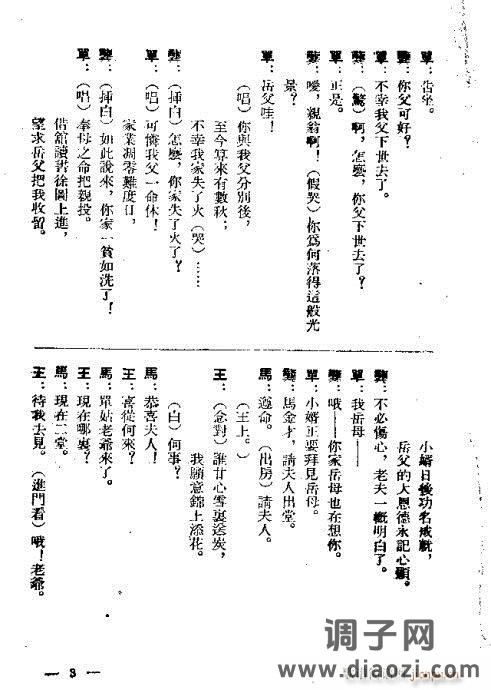 單：告坐。
龔：你父可好？
單：不幸我父下世去了。
龔：（驚）啊，怎麼，你父下世去了？
單：正是。
龔：噯，親翁啊！（假哭）你爲何落得這般光
景？
單：岳父哇！
（唱）你與我父分別後，
至今算來有數秋；
不幸我家失了火（哭）……
龔：（揷白）怎麼，你家失了火了？
單：（唱）可憐我父一命休！
家業凋零難度日，
龔：（揷白）如此說來，你家一貧如洗了！
單：（唱）奉母之命把親投。
借舘讀書徐圖上進，
望求岳父把我收留。
小婿日後功名成就，
岳父的大恩德永記心頭。
龔：不必傷心，老夫一槪明白了。
單：我岳母——
龔：哦——你家岳母也在想你。
單：小婿正要拜見岳母。
龔：馬金才，請夫人出堂。
馬：遵命。（出房）請夫人。
（王上。）
王：（念對）誰甘心雪裏送炭，
我願意錦上添花。
（白）何事？
馬：恭喜夫人！
王：喜從何來？
馬：單姑老爺來了。
王：現在哪裏？
馬：現在二堂。
王：待我去見。（進門看）哦！老爺。
— 3 —
调子网
www.diaozi.com